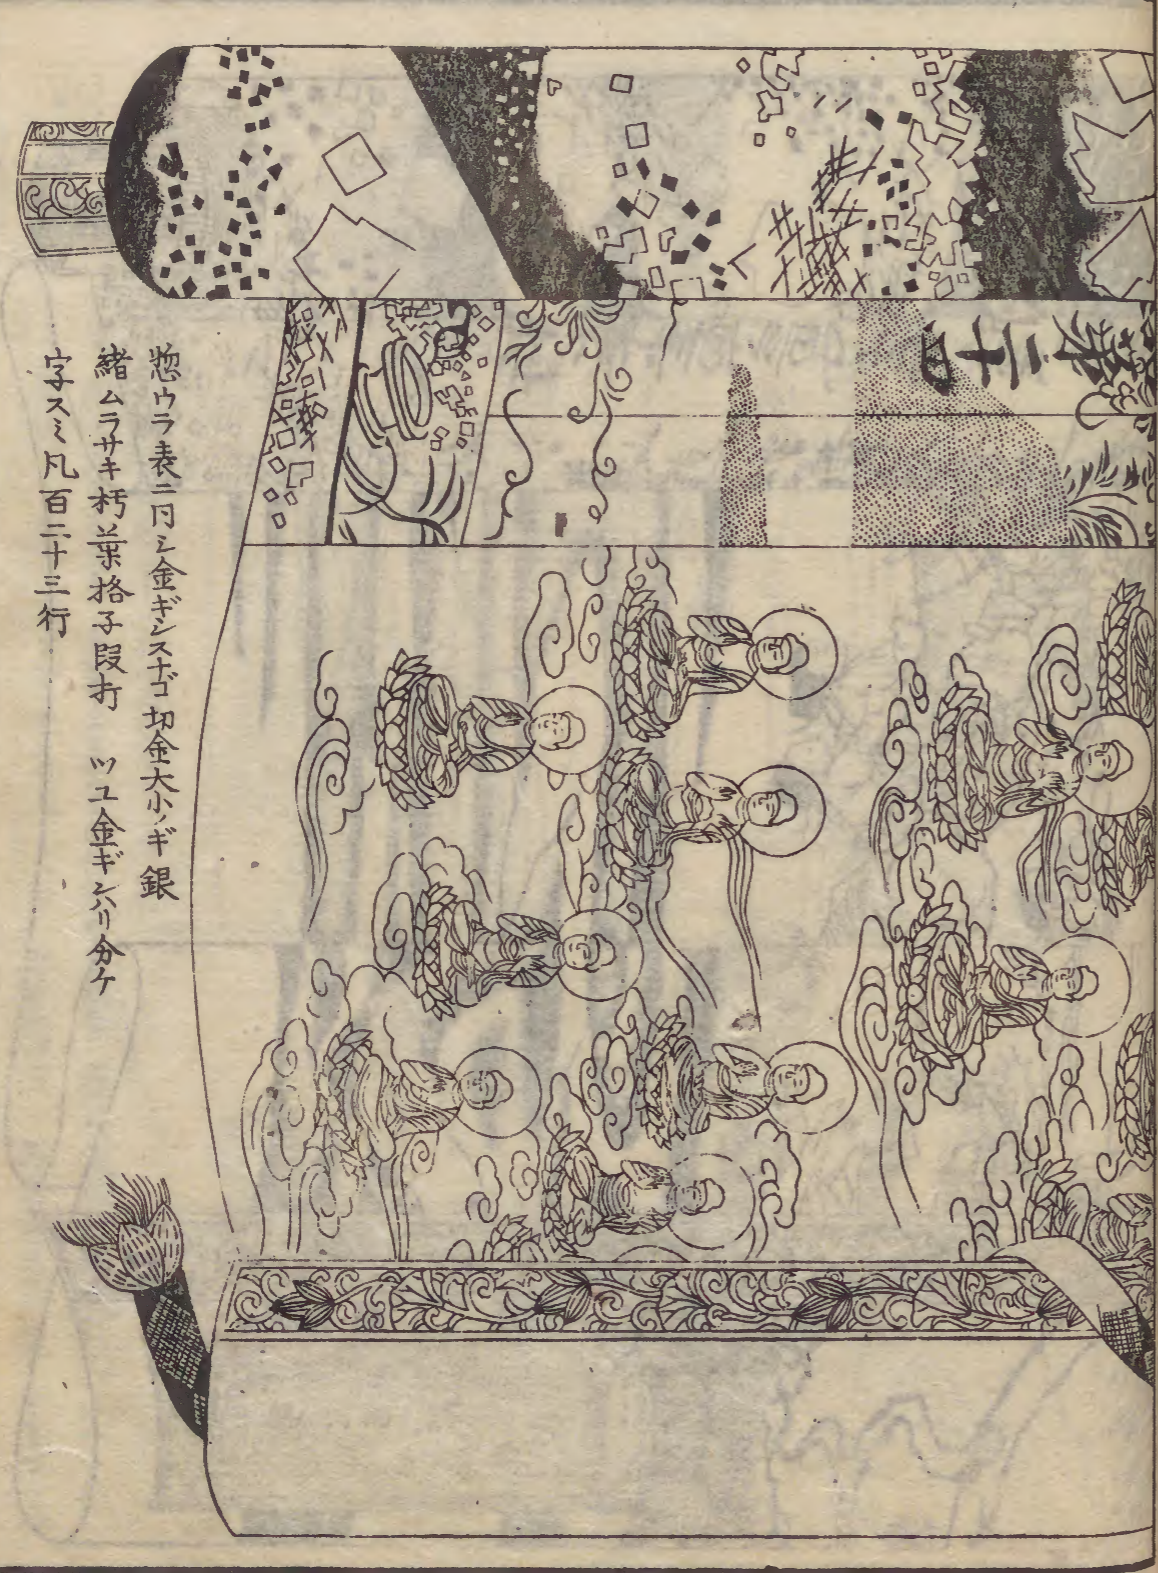 惣ウラ表ニ同シ金ギンスナゴ切金大小ノギ銀
緒ムラサキ朽葉格子段打　ツユ金ギンハリ分ケ
字スミ凡百二十三行
第二十四